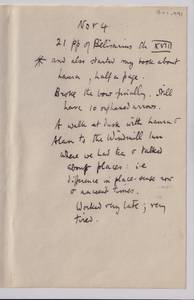 Nov 4
21 pp of Belisarius Ch XVIII
* and also started my book about
Laura, half a page.
Broke the bow finally, still
have 10 orphaned arrows.
A walk at dusk with Laura &
Alan to the Windmill Inn
where we had tea & talked
about places: i.e.
difference in place-sense now
& ancient times.
Worked very late; very
tired.